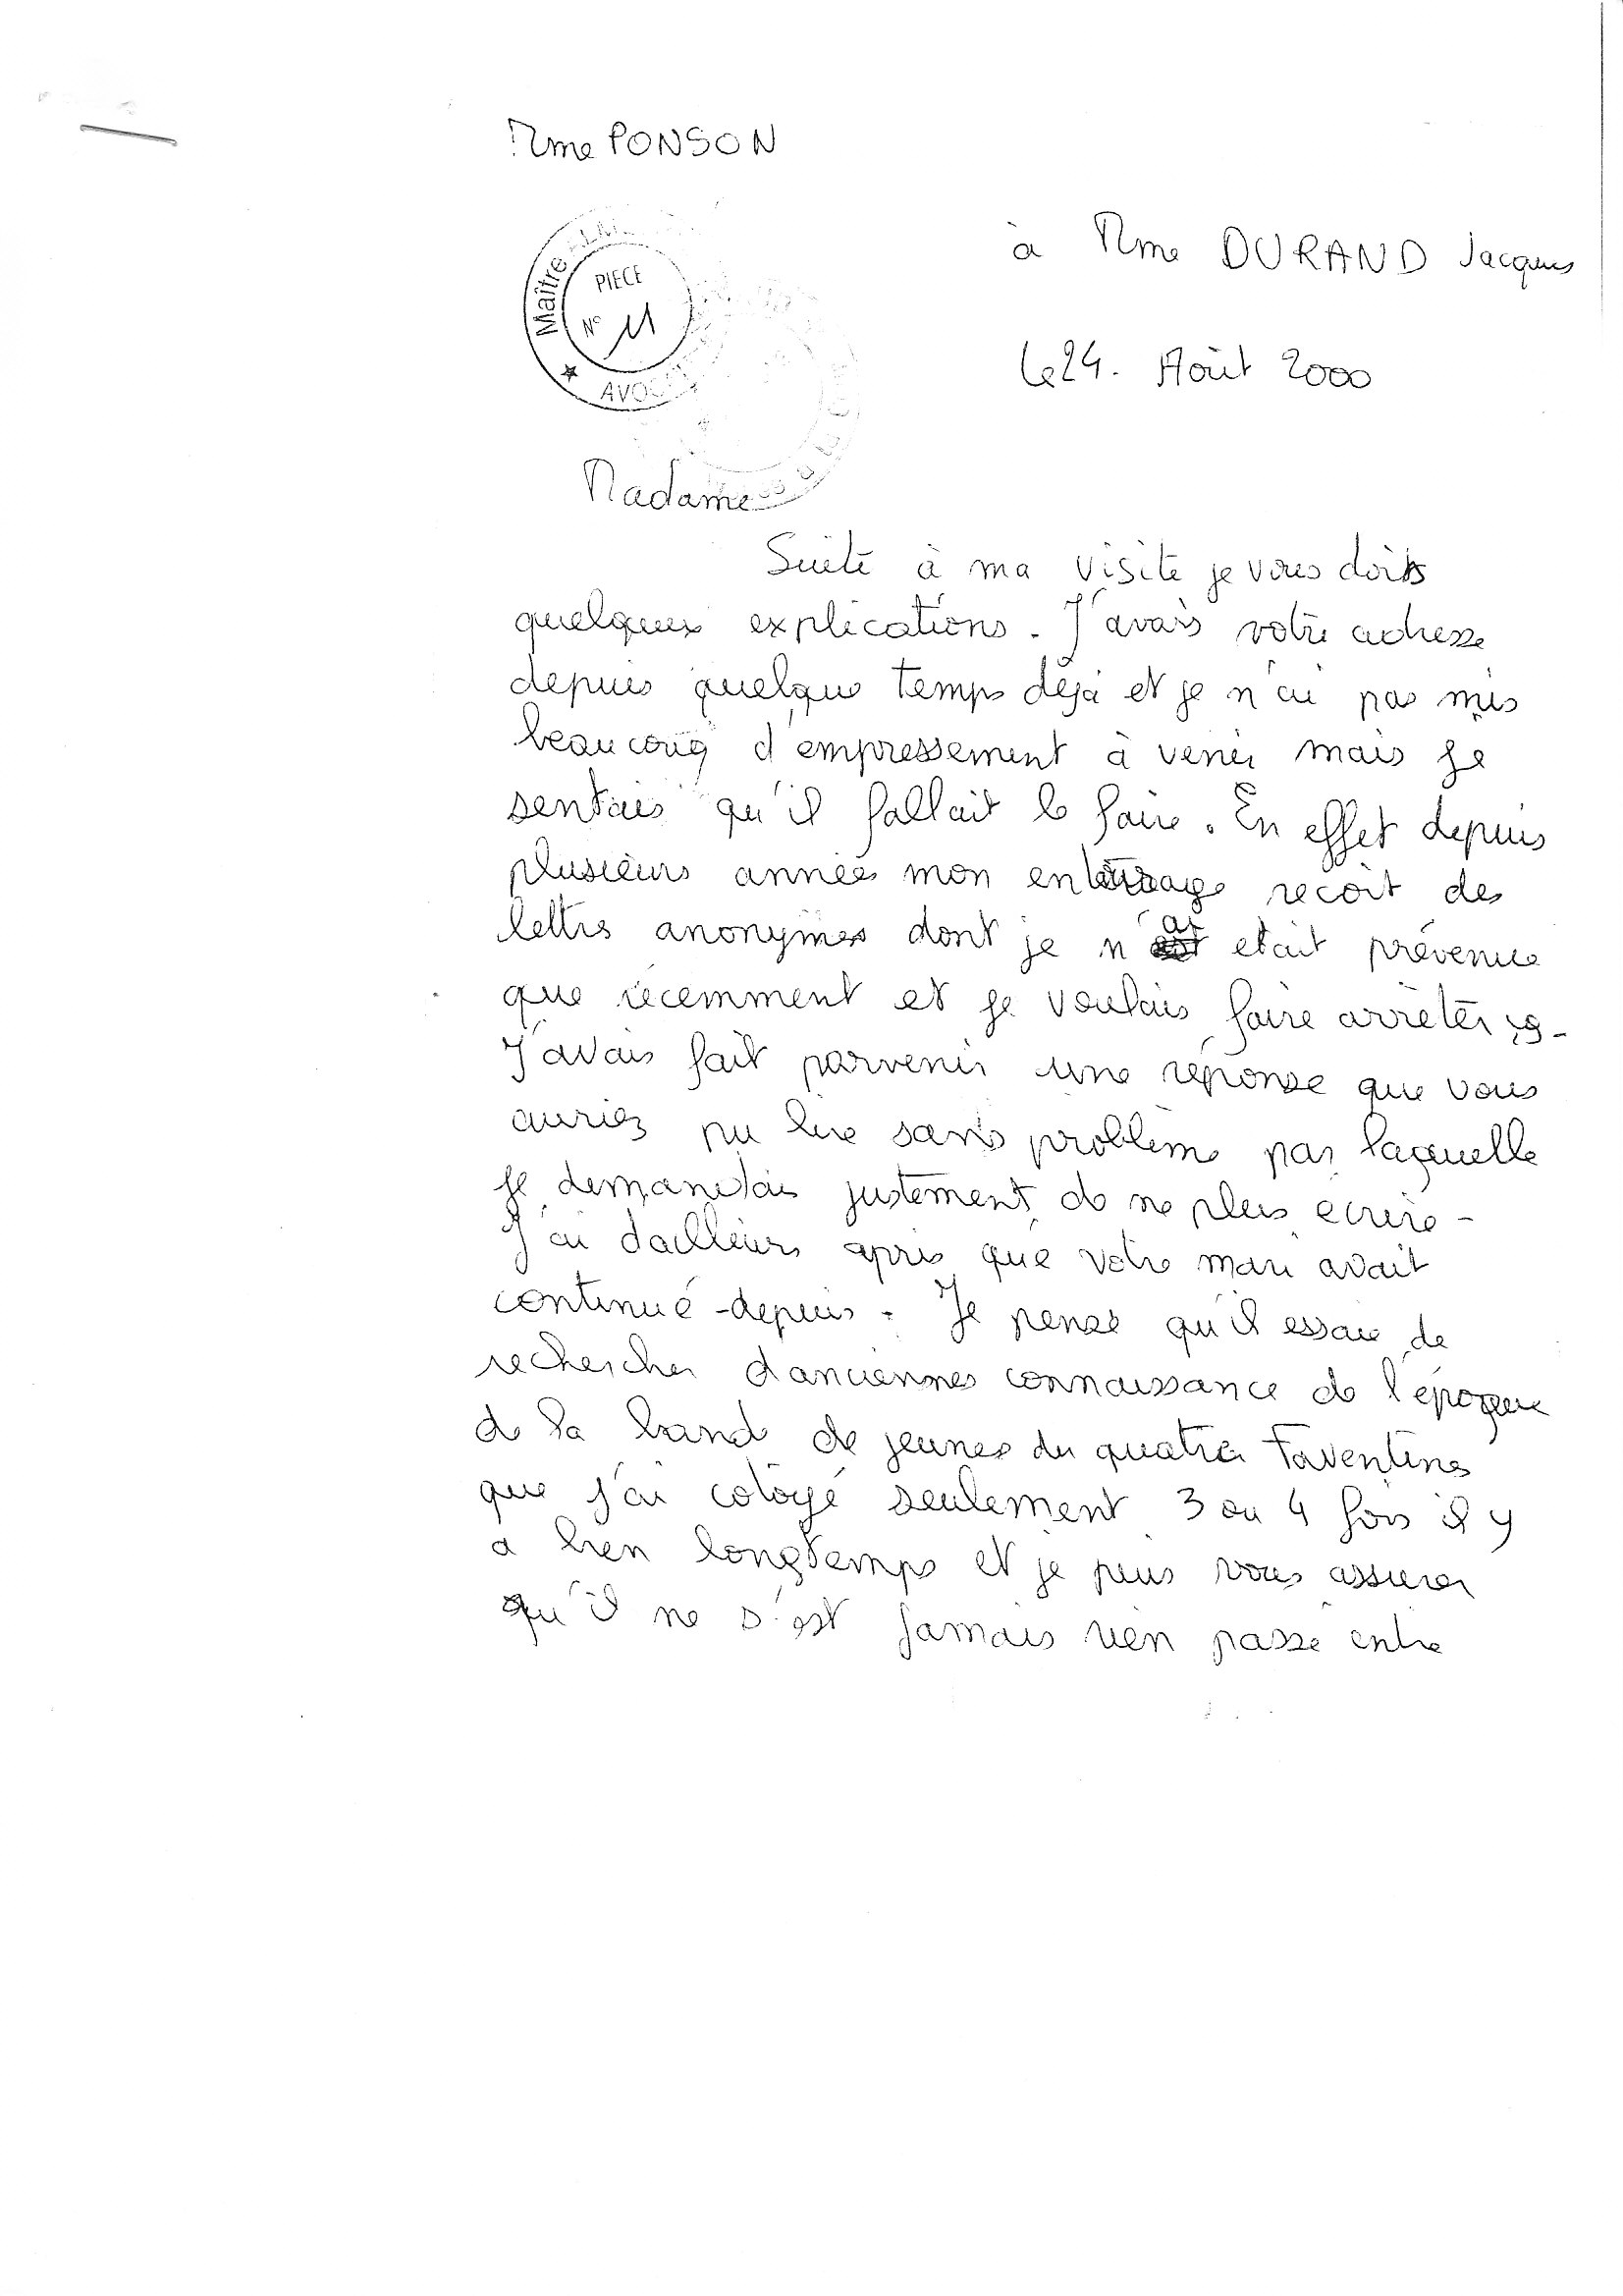 Mme PONSON
à Mme DURAND Jacques
Maître
PIECE
N° 11
AVOC
le 24. Août 2000
Madame
Suite à ma visite je vous dois
quelques explications. J'avais votre adresse
depuis quelque temps déjà et je n'ai pas mis
beaucoup d'empressement à venir mais je
sentais qu'il fallait le faire. En effet depuis
plusieurs années mon entourage recoit des
lettres anonymes dont je n'ai etait prévenue
que récemment et je voulais faire arrêter ça -
J'avais fait parvenir une réponse que vous
auriez pu lire sans problème par laquelle
je demandais justement de ne plus ecrire -
J'ai dailleurs apris que votre mari avait
continué depuis. Je pense qu'il essaie de
rechercher d'anciennes connaissance de l'époque
de la band de jeunes du quatier Faventines
que j'ai cotoyé seulement 3 ou 4 fois il y
a bien longtemps et je peus vous assurer
qu'il ne s'est jamais rien passé entre